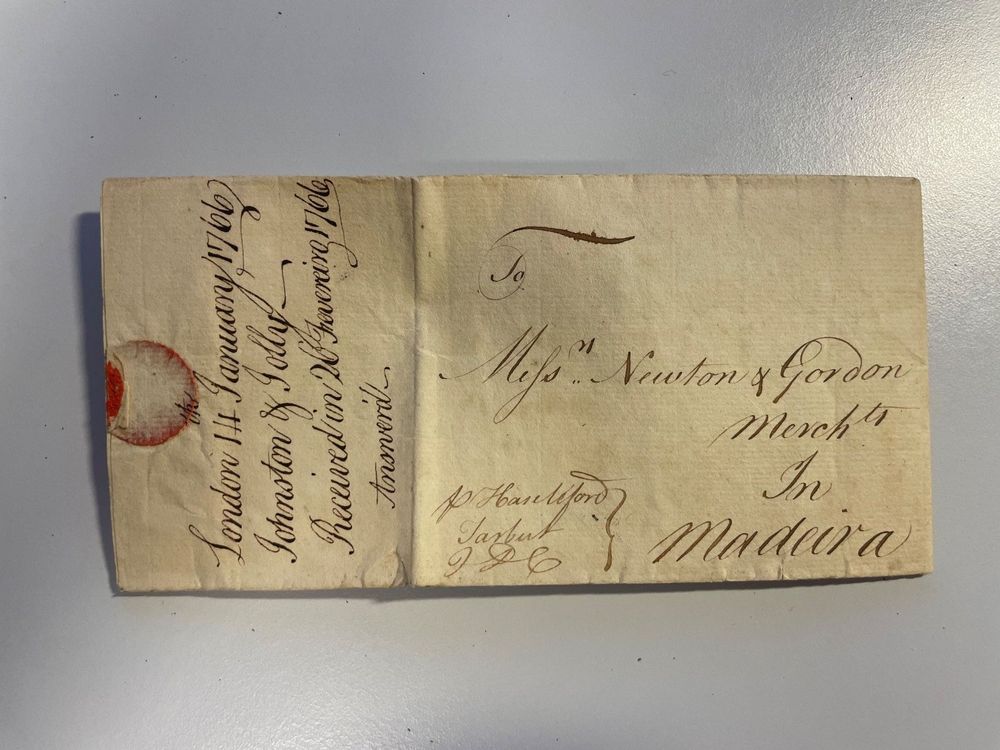 London 14 January 1766
Johnston & Jolly
Received in 26 Fevereiro 1766
Answerd
To
Messrs Newton & Gordon
Merchts
In
Madeira
Haseliford
Tarbut
Q D C